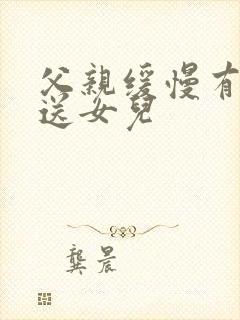 父親缓慢有
送女兒
龔晨